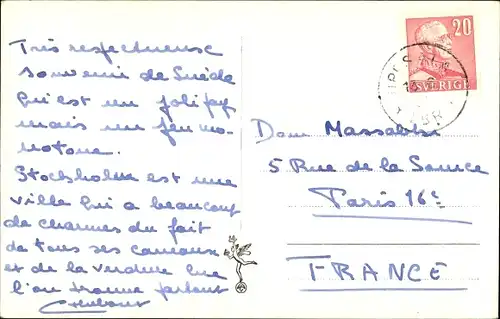 Très respectueuse
souvenir de Suède
qui est un joli pays
mais un peu mo-
notone.
Stockholm est une
ville qui a beaucoup
de charmes du fait
de tous ses canaux
et de la verdure que
l'on trouve partout
20
SVERIGE
Dom Massabki
5 Rue de la Source
Paris 16e
FRANCE